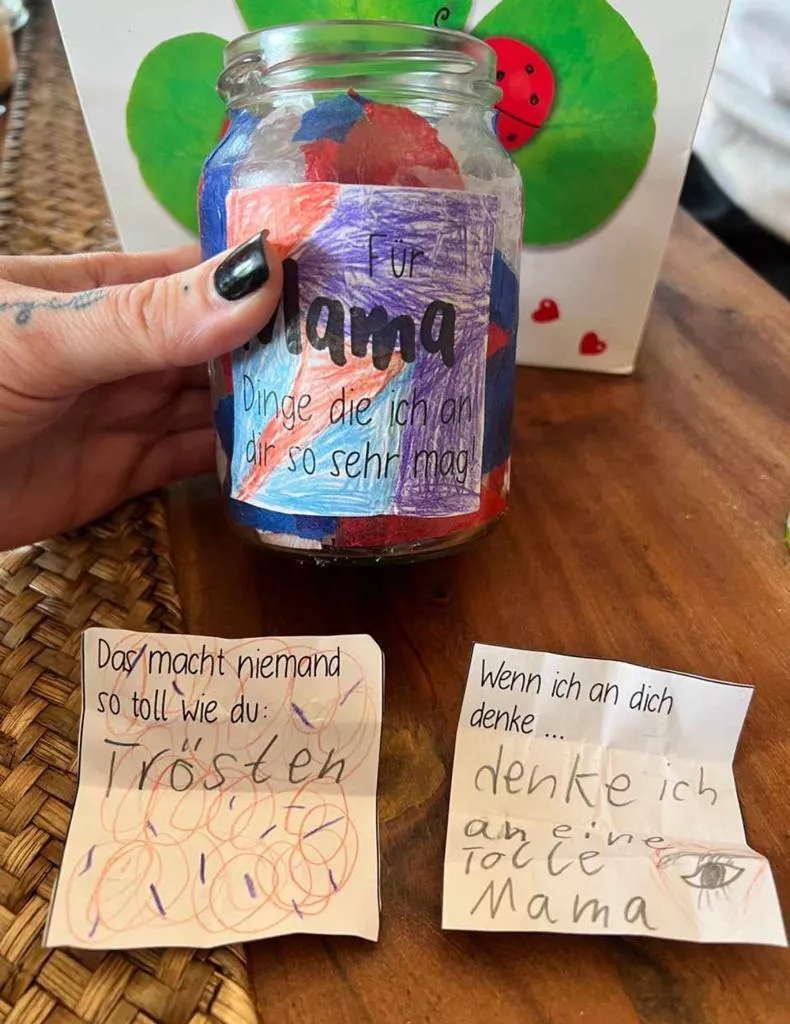 Für
Mama
Dinge die ich an
dir so sehr mag!
Das macht niemand
so toll wie du:
Trösten
Wenn ich an dich
denke ...
denke ich
an eine
Tolle
Mama